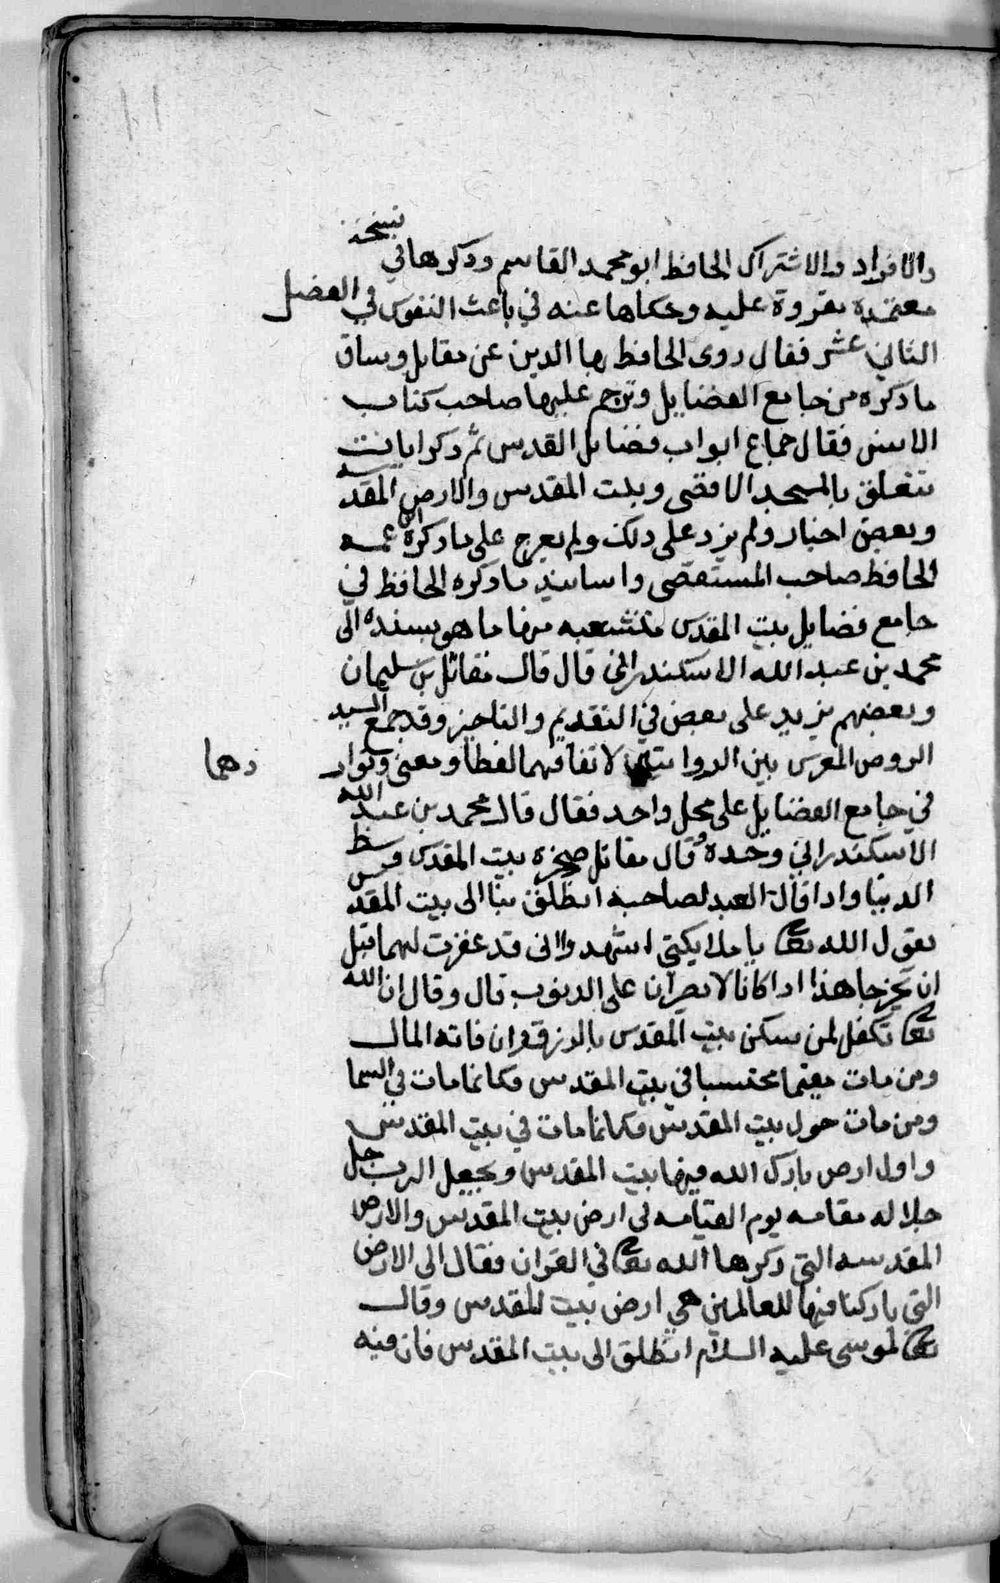 والافراد والاشتراك الحافظ ابو محمد القاسم وذكرها في نسخة
معتمدة مقروة عليه وحكاها عنه في باعث النفوس في الفضل
الثاني عشر فقال روى الحافظ بها الدين عن مقاتل وساق
ما ذكره من جامع الفضايل وترجم عليها صاحب كتاب
الانس فقال جماع ابواب فضايل القدس ثم ذكر ايات
تتعلق بالمسجد الاقصى وبيت المقدس والارض المقدسه
وبعض اخبار ولم يزد على ذلك ولم يعرج على ما ذكره عمه
الحافظ صاحب المستقصى واسانيد ما ذكره الحافظ في
جامع فضايل بيت المقدس متشعبه منها ما هو بسنده الى
محمد بن عبد الله الاسكندراني قال قال مقاتل بن سليمان
وبعضهم يزيد على بعض في التقديم والتاخير وقد جمع السيد
الروض المغرس بين الروايتين لاتفاقهما لفظا ومعنى وتوار
دهما
في جامع الفضايل على محل واحد فقال قال محمد بن عبد الله
الاسكندراني وحده وقال مقاتل صخرة بيت المقدس وسط
الدنيا واذا قال العبد لصاحبه انطلق بنا الى بيت المقدس
يقول الله تعالى يا ملايكتي اشهدوا اني قد غفرت لهما قبل
ان يخرجا هذا اذا كانا لا يصران على الذنوب قال وقال ان الله
تعالى تكفل لمن سكن بيت المقدس بالرزق وان فاته المال
ومن مات مقيما محتسبا في بيت المقدس فكانما مات في السما
ومن مات حول بيت المقدس فكانما مات في بيت المقدس
واول ارض بارك الله فيها بيت المقدس ويجعل الرب جل
جلاله مقامه يوم القيامه في ارض بيت المقدس والارض
المقدسه التي ذكرها الله تعالى في القران فقال الى الارض
التي باركنا فيها للعالمين هي ارض بيت المقدس وقال
تعالى لموسى عليه السلام انطلق الى بيت المقدس فان فيه